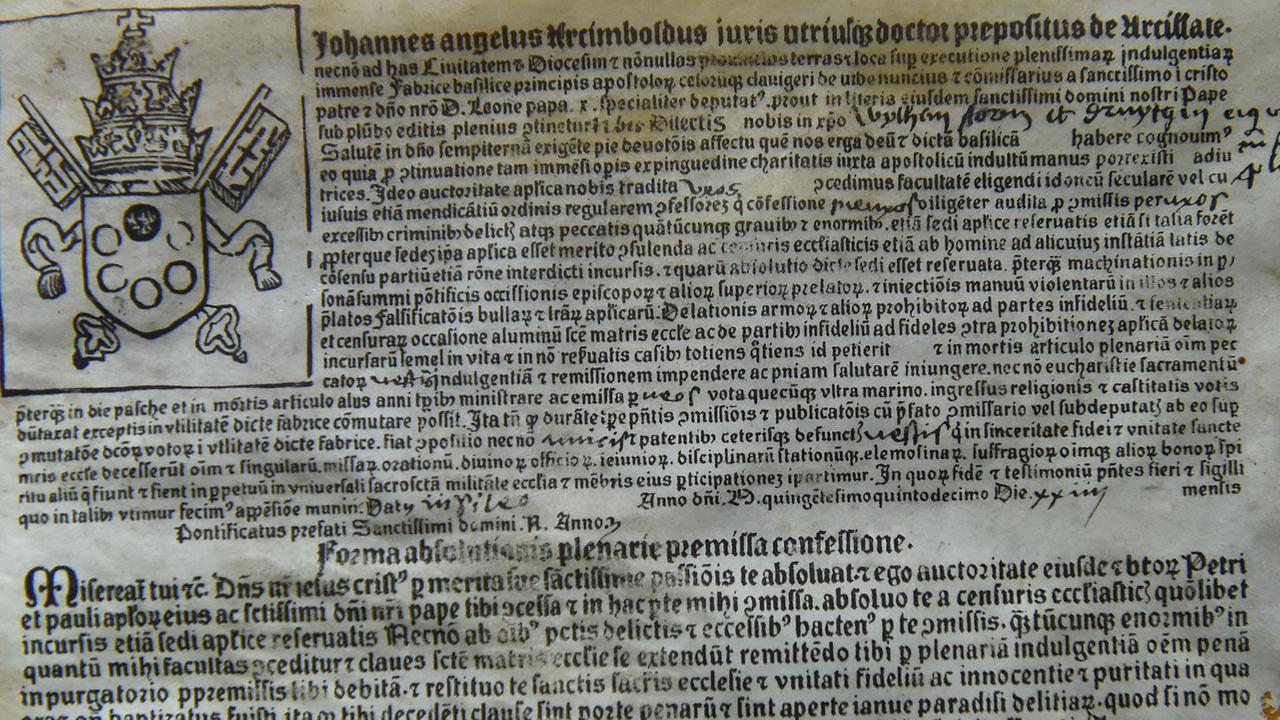 Johannes angelus Arcimboldus iuris utriusqȝ doctor prepositus de Arcisate.
necnō ad has Ciuitatem ⁊ Diocesim ⁊ nōnullas terras ⁊ loca sup executione plenissimaꝝ jndulgentiaꝝ
immense Fabrice basilice principis apostoloꝝ celoruqȝ clauigeri de urbe nuncius ⁊ cōmissarius a sanctissimo i cristo
patre ⁊ dn̄o nr̄o D. Leone papa. x. specialiter deputatꝰ. prout in literis eiusdem sanctissimi domini nostri Pape
sub plūbo editis plenius ꝯtinetur Dilectis nobis in xp̄o et
Salutē in dn̄o sempiternā exigēte pie deuotōis affectu quē nos erga deū ⁊ dictā basilicā habere cognouimꝰ
eo quia ꝓ ꝯtinuatione tam immēsi opis expinguedine charitatis iuxta apostolicū indultū manus porrexisti adiu
trices. Jdeo auctoritate apl̄ica nobis tradita vros ꝯcedimus facultatē eligendi idoneū seculare vel cu
iusuis etiā mendicātiū ordinis regularem ꝯfessoreȝ q̄ cōfessione diligēter audita ꝓ ꝯmissis per
excessibꝫ criminibꝫ delictȝ atqȝ peccatis quātūcunqȝ grauibꝫ ⁊ enormibꝫ. etiā sedi apl̄ice reseruatis etiā si talia forēt
ꝓpter que sedes ipa apl̄ica esset merito ꝯsulenda ac censuris eccl̄iasticis etiā ab homine ad alicuius instātiā latis de
cōsensu partiū etiā rōne interdicti incursis. ⁊ quarū absolutio dicte sedi esset reseruata. p̄terqȝ machinationis in p
sonā summi pōtificis occisionis episcopoꝝ ⁊ alioꝝ superioꝝ prelatoꝝ. ⁊ iniectiōis manuū violentarū in illos ⁊ alios
p̄latos falsificatōis bullaꝝ ⁊ lr̄aꝝ apl̄icarū. Delationis armoꝝ ⁊ alioꝝ prohibitoꝝ ad partes infideliū. ⁊ sententiaꝝ
et censuraꝝ occasione aluminū sc̄e matris eccl̄e ac de partibꝫ infideliū ad fideles ꝯtra prohibitioneȝ apl̄icā delatoꝝ
incursarū semel in vita ⁊ in nō reſuatis casibꝫ totiens q̄tiens id petierit ⁊ in mortis articulo plenariā oīm pec
catoꝝ indulgentiā ⁊ remissionem impendere ac pniam salutarē iniungere. necnō eucharistie sacramentū
p̄terqȝ in die pasche et in mortis articulo alijs anni tp̄ibꝫ ministrare ac emissa ꝑ vos vota quecūqȝ vltra marino. ingressus religionis ⁊ castitatis votis
dūtaxat exceptis in vtilitatē dicte fabrice cōmutare possit. Jta tn̄ ꝙ durāte tp̄e pn̄tis ꝯmissiōis ⁊ publicatōis cū p̄fato ꝯmissario vel subdeputatȝ ab eo sup
ꝯmutatōe dcōꝝ votoꝝ i vtilitatē dicte fabrice. fiat ꝯpositio necnō patentibꝫ ceterisqȝ defunctȝ vestris q̄ in sinceritate fidei ⁊ vnitate sancte
mr̄is eccl̄e decesserūt oīm ⁊ singularū. missaꝝ. orationū. diuinoꝝ officioꝝ. ieiunioꝝ. disciplinarū stationūqȝ. elemosinaꝝ. suffragioꝝ oīmqȝ alioꝝ bonoꝝ spi
ritualiū q̄ fiunt ⁊ fient in ꝑpetuū in vniuersali sacrosctā militāte eccl̄ia ⁊ mēbris eius ꝑticipationeȝ ipartimur. Jn quoꝝ fidē ⁊ testimoniū pn̄tes fieri ⁊ sigilli
quo in talibꝫ vtimur fecimꝰ appēsiōe muniri. Datȝ Anno dn̄i. M. quingētesimoquintodecimo Die. mensis
Pontificatus prefati Sanctissimi domini. N. Anno
Forma absolutionis plenarie premissa confessione.
Misereat̄ tui ⁊c. Dn̄s nr̄ iesus cristꝰ ꝑ merita sue sāctissime passiōis te absoluat. ⁊ ego auctoritate eiusdē ⁊ btoꝝ Petri
et pauli apl̄oꝝ eius ac sctissimi dn̄i nr̄i pape tibi ꝯcessa ⁊ in hac pte mihi ꝯmissa. absoluo te a censuris eccl̄iasticȝ quōlibet
incursis etiā sedi apl̄ice reseruatis Necnō ab oībꝰ pctis delictis ⁊ excessibꝰ hactenꝰ ꝑ te ꝯmissis. q̄tūcunqȝ enormibꝰ in
quantū mihi facultas ꝯceditur ⁊ claues sctē matris eccl̄ie se extendūt remittēdo tibi ꝑ plenariā indulgentiā oēm penā
in purgatorio ꝓ premissis tibi debitā. ⁊ restituo te sanctis sacris ecclesie ⁊ vnitati fideliū ac innocentie ⁊ puritati in qua
baptizatus fuisti ita ꝙ tibi decedēti clause sint porte penarū ⁊ sint aperte ianue paradisi delitiaꝝ. quod si nō mo